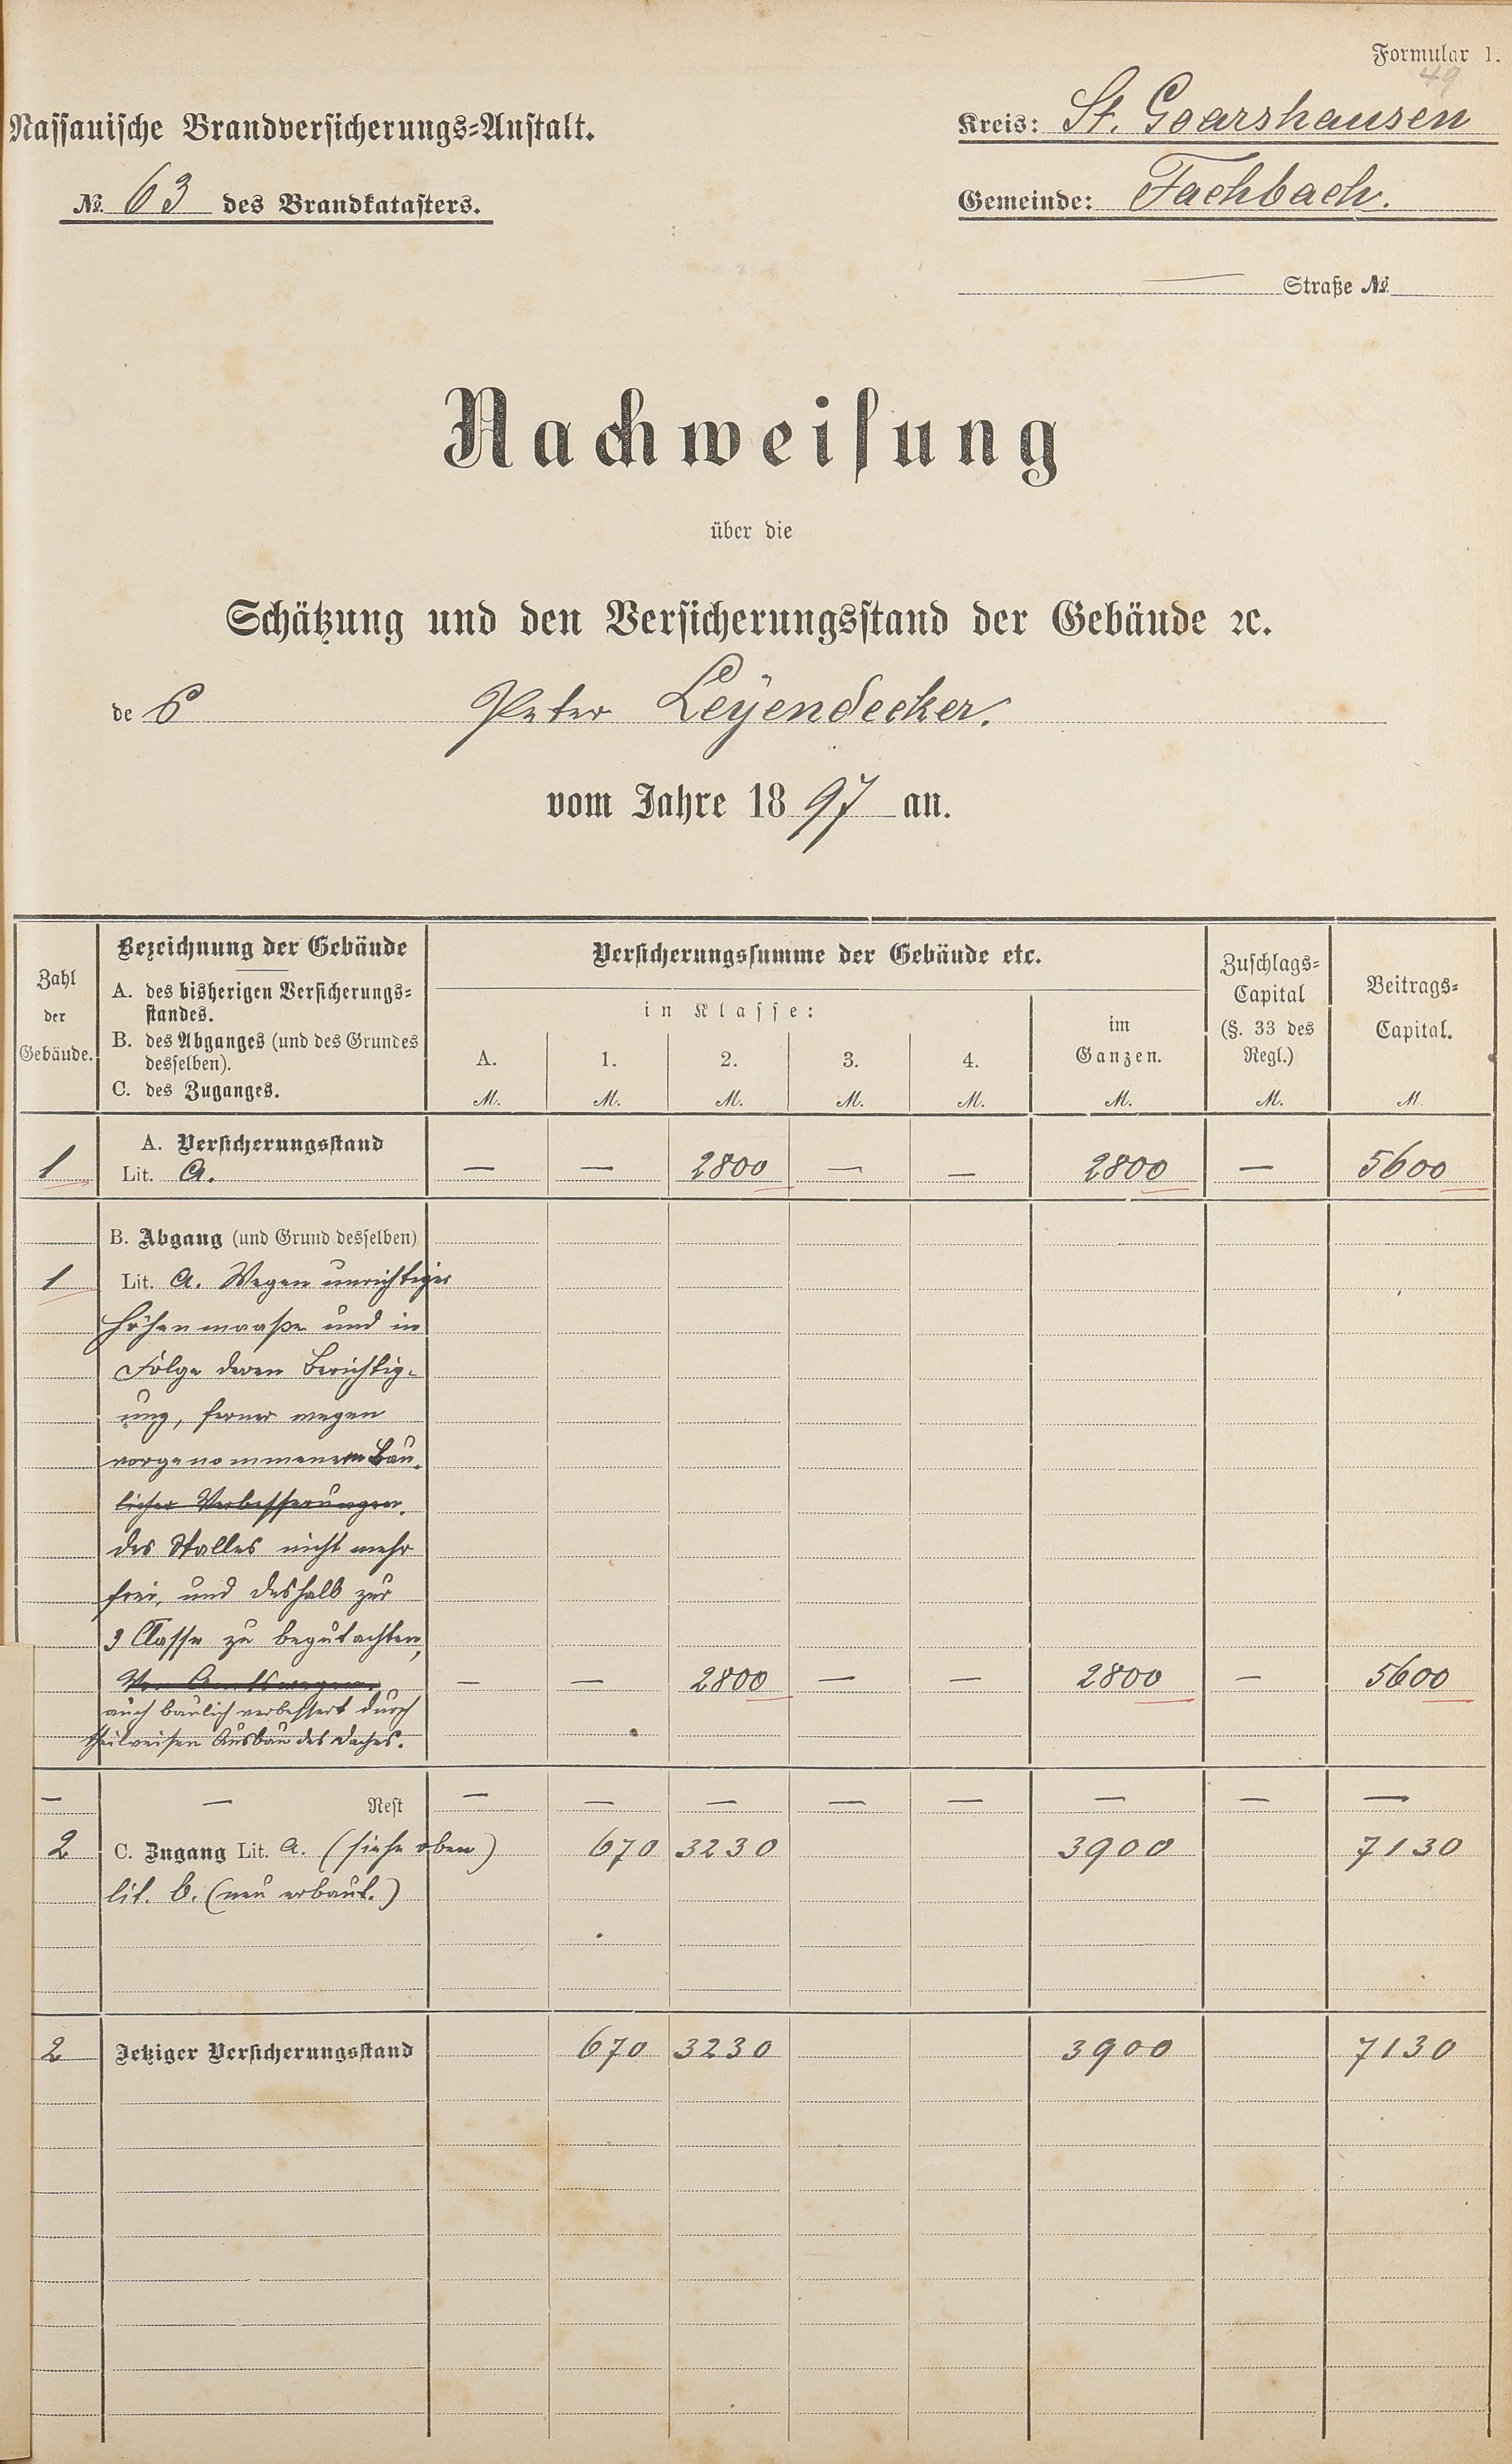 Formular 1.
49
Nassauische Brandversicherungs-Anstalt.
Kreis: St. Goarshausen
№ 63 des Brandkatasters.
Gemeinde: Fachbach.
— Straße №
Nachweisung
über die
Schätzung und den Versicherungsstand der Gebäude ꝛc.
des Peter Leÿendecker.
vom Jahre 1897 an.
Zahl der Gebäude.
Bezeichnung der Gebäude
A. des bisherigen Versicherungs-
standes.
B. des Abganges (und des Grundes
desselben).
C. des Zuganges.
Versicherungssumme der Gebäude etc.
in Klasse:
A. 1. 2. 3. 4.
im Ganzen.
Zuschlags-
Capital
(§. 33 des
Regl.)
Beitrags-
Capital.
M. M. M. M. M. M. M. M.
A. Versicherungsstand
1 Lit. A. — — 2800 — — 2800 — 5600
B. Abgang (und Grund desselben)
1 Lit. A. Wegen unrichtiger
Höhenmaaße und in
Folge deren Berichtig-
ung, ferner wegen
vorgenommenem Bau-
licher Verbesserungen.
des Stalles nicht mehr
frei, und deshalb zur
3 Classe zu begutachten,
Von Amtswegen. — — 2800 — — 2800 — 5600
auch baulich verbessert durch
theilweisen Ausbau des Daches.
— — Rest — — — — — — — —
2 C. Zugang Lit. A. (siehe oben) 670 3230 3900 7130
lit. b. (neu erbaut.)
2 Jetziger Versicherungsstand 670 3230 3900 7130